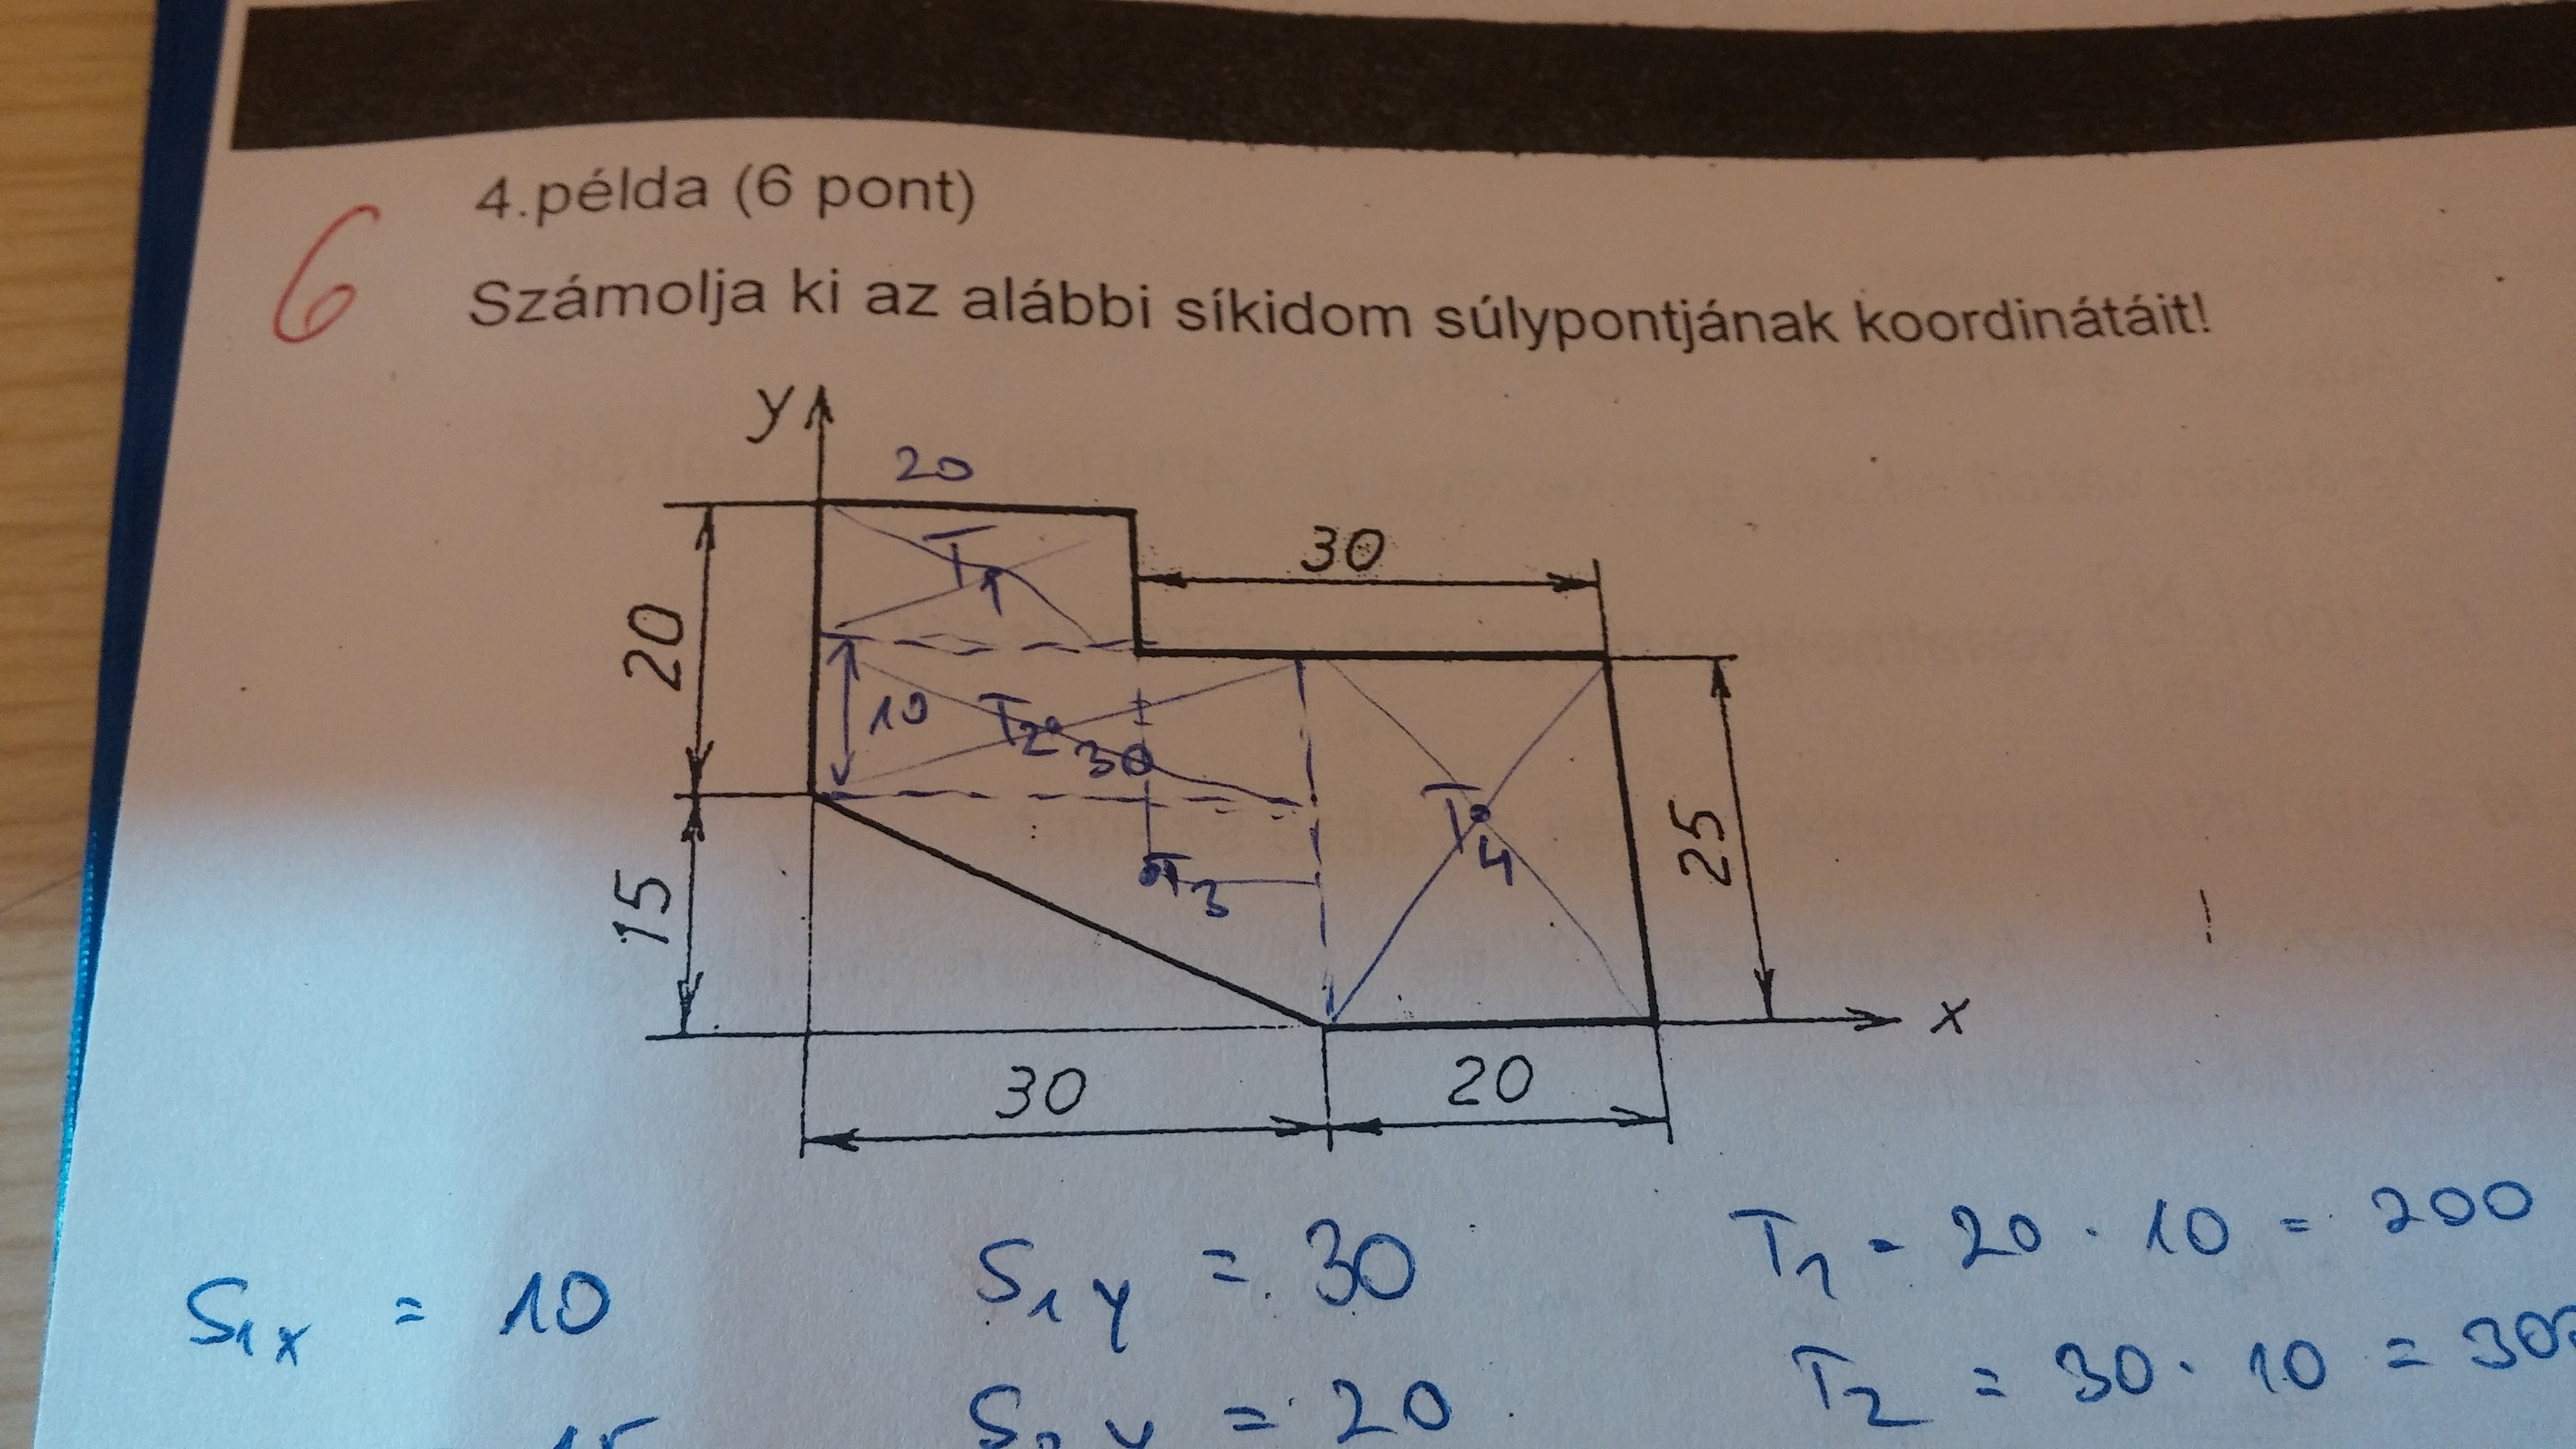 4.példa (6 pont)
6
Számolja ki az alábbi síkidom súlypontjának koordinátáit!
y
20
T1
30
20
10
T2
30
T4
25
T3
15
x
30
20
S1x = 10
S1y = 30
T1 = 20 · 10 = 200
= 20
T2 = 30 · 10 =